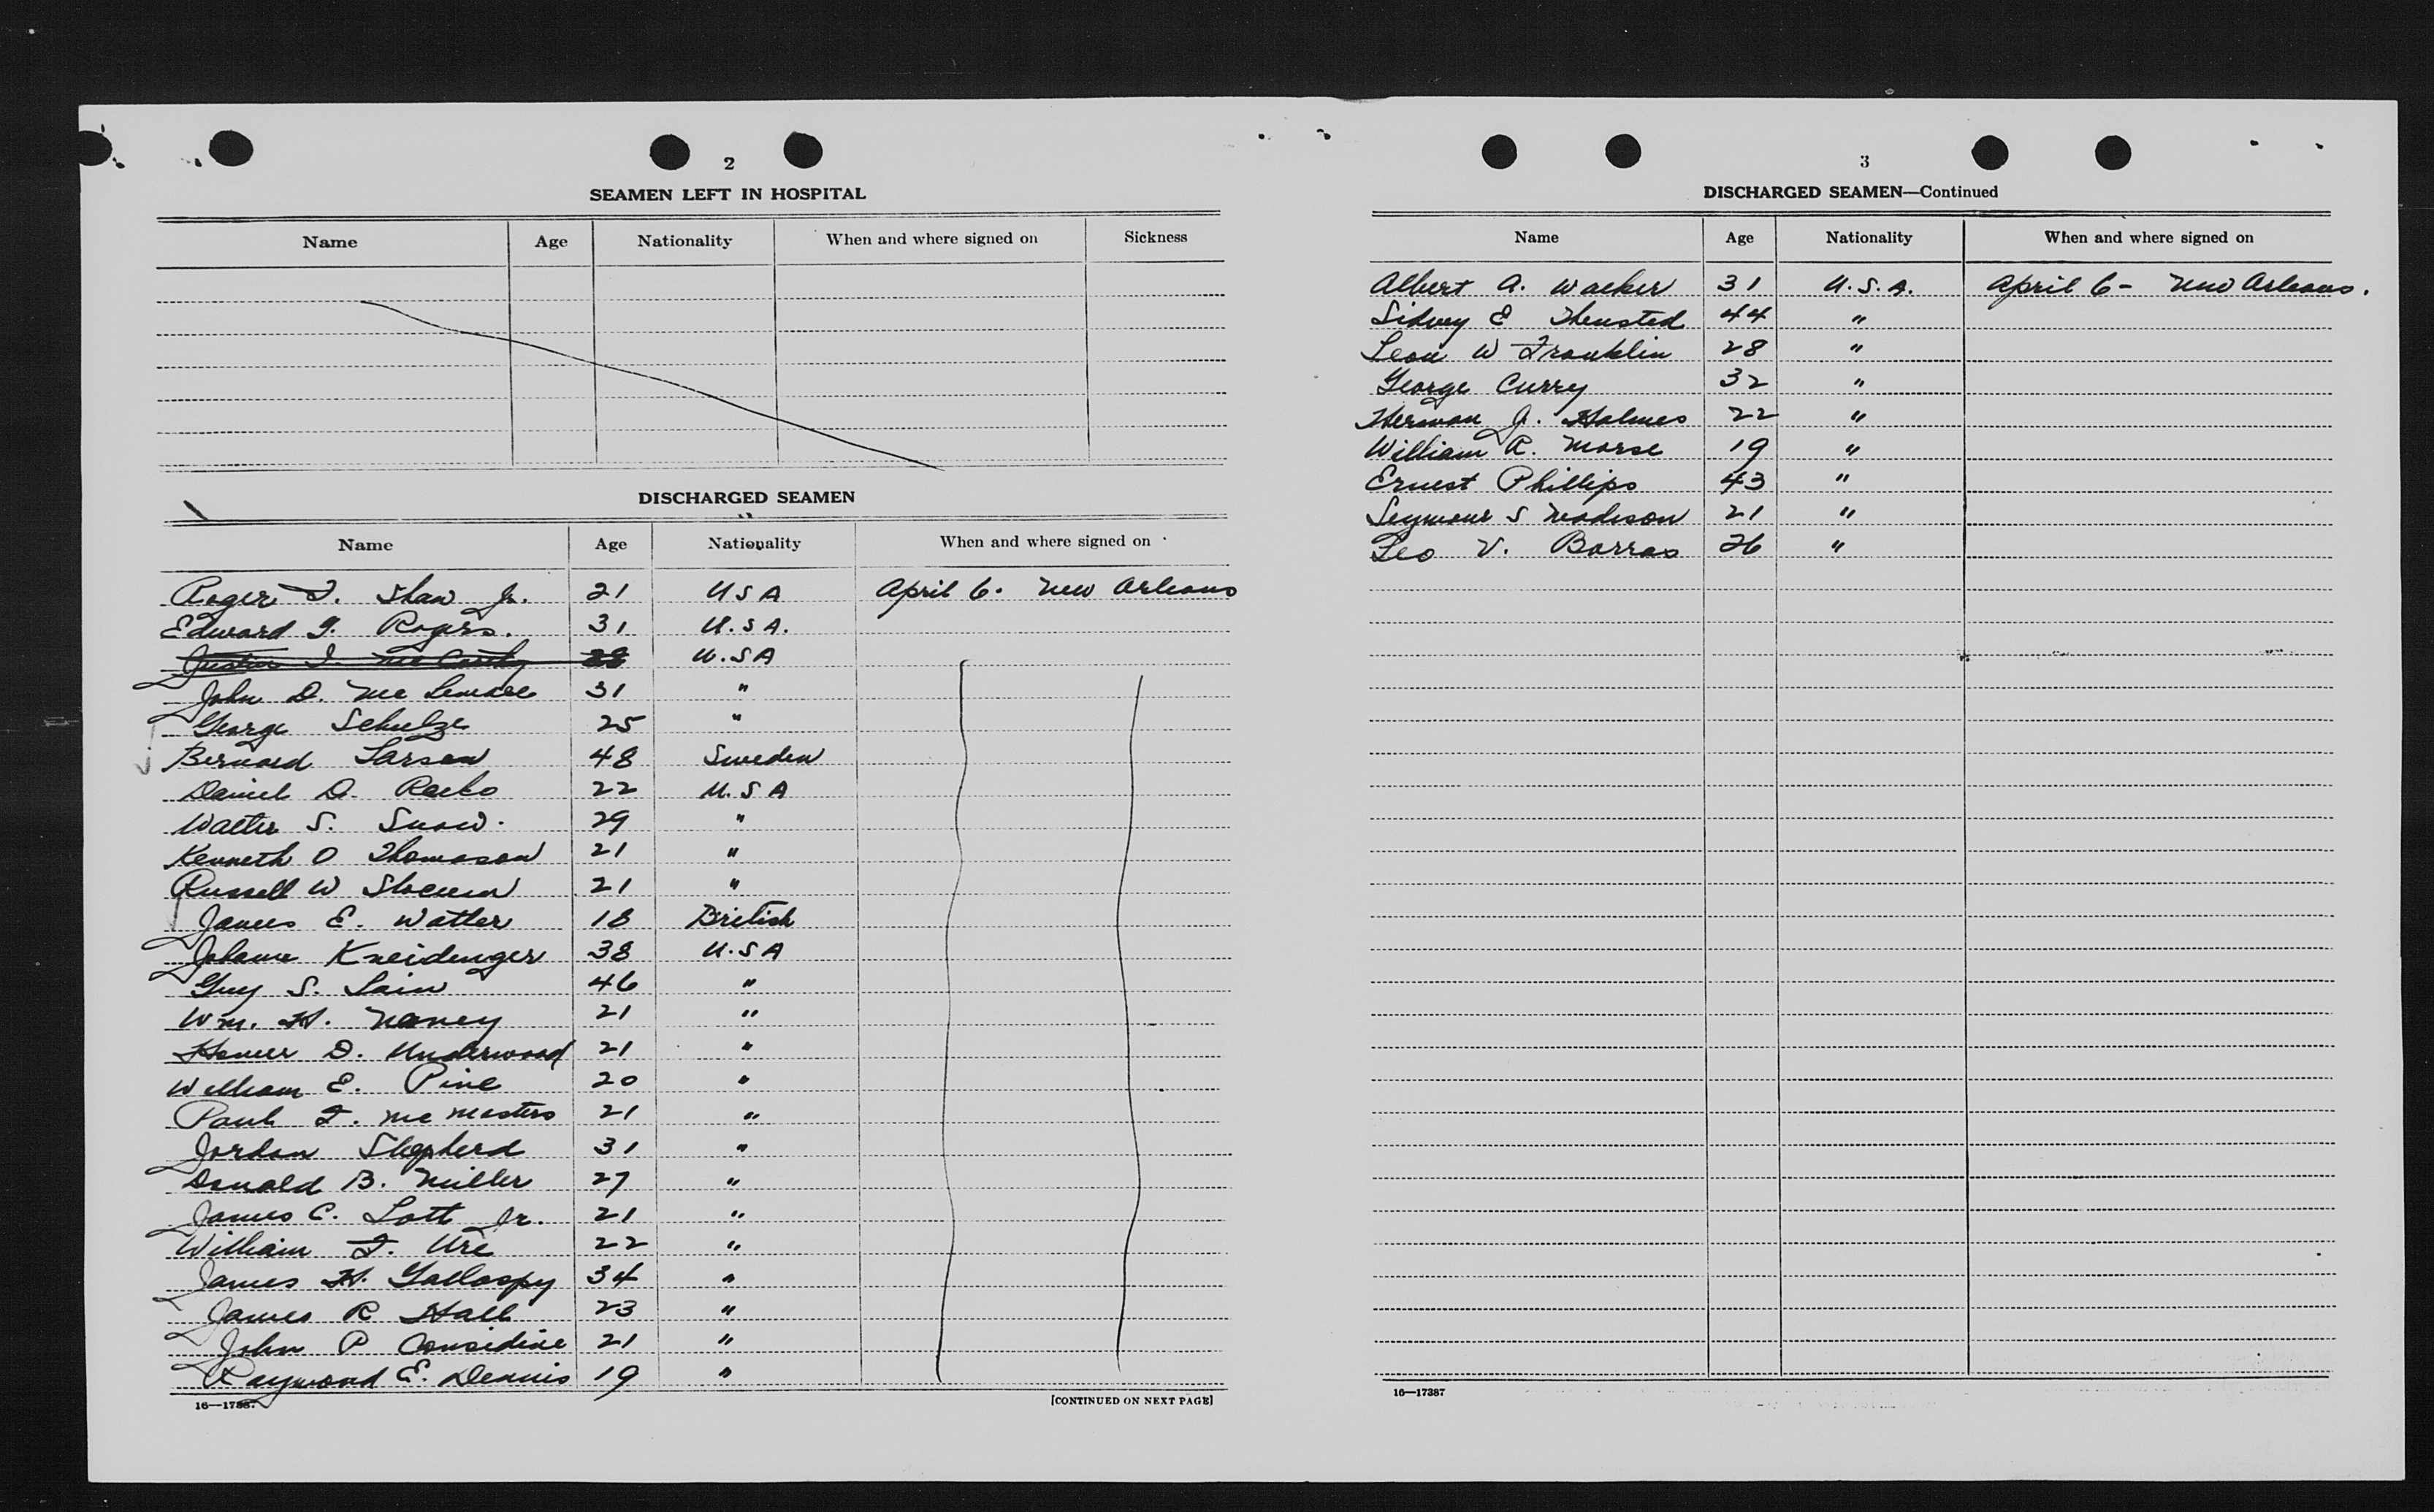 2
SEAMEN LEFT IN HOSPITAL
Name Age Nationality When and where signed on Sickness
DISCHARGED SEAMEN
Name Age Nationality When and where signed on
Roger F. Shaw Jr. 21 USA April 6. New Orleans
Edward G. Rogers. 31 U.S.A.
Mc Carthy U.SA
John D. Mc 31 "
George Schulze 25 "
Bernard Larsen 48 Sweden
Daniel D. 22 U.SA
Walter S. Snow. 29 "
Kenneth O Thomason 21 "
Russell W Slocum 21 "
James E. Watler 18 British
Kneidenger 38 U.SA
Guy S. Lain 46 "
Wm. H. Naney 21 "
Homer D. Underwood 21 "
William E. Pine 20 "
Paul F. Mc Masters 21 "
Jordan Shepherd 31 "
Donald B. Miller 27 "
James C. Lott Jr. 21 "
William F. Ure 22 "
James H. Gallaspy 34 "
James R Hall 23 "
John P Considine 21 "
Raymond E. Dennis 19 "
16—17387
[CONTINUED ON NEXT PAGE]
3
DISCHARGED SEAMEN—Continued
Name Age Nationality When and where signed on
Albert A. Walker 31 U.S.A. April 6- New Orleans.
Sidney E 44 "
Leon W Franklin 28 "
George Curry 32 "
Herman J. Holmes 22 "
William R. Morse 19 "
Ernest Phillips 43 "
Seymour S Madison 21 "
Leo V. Barras 26 "
16—17387